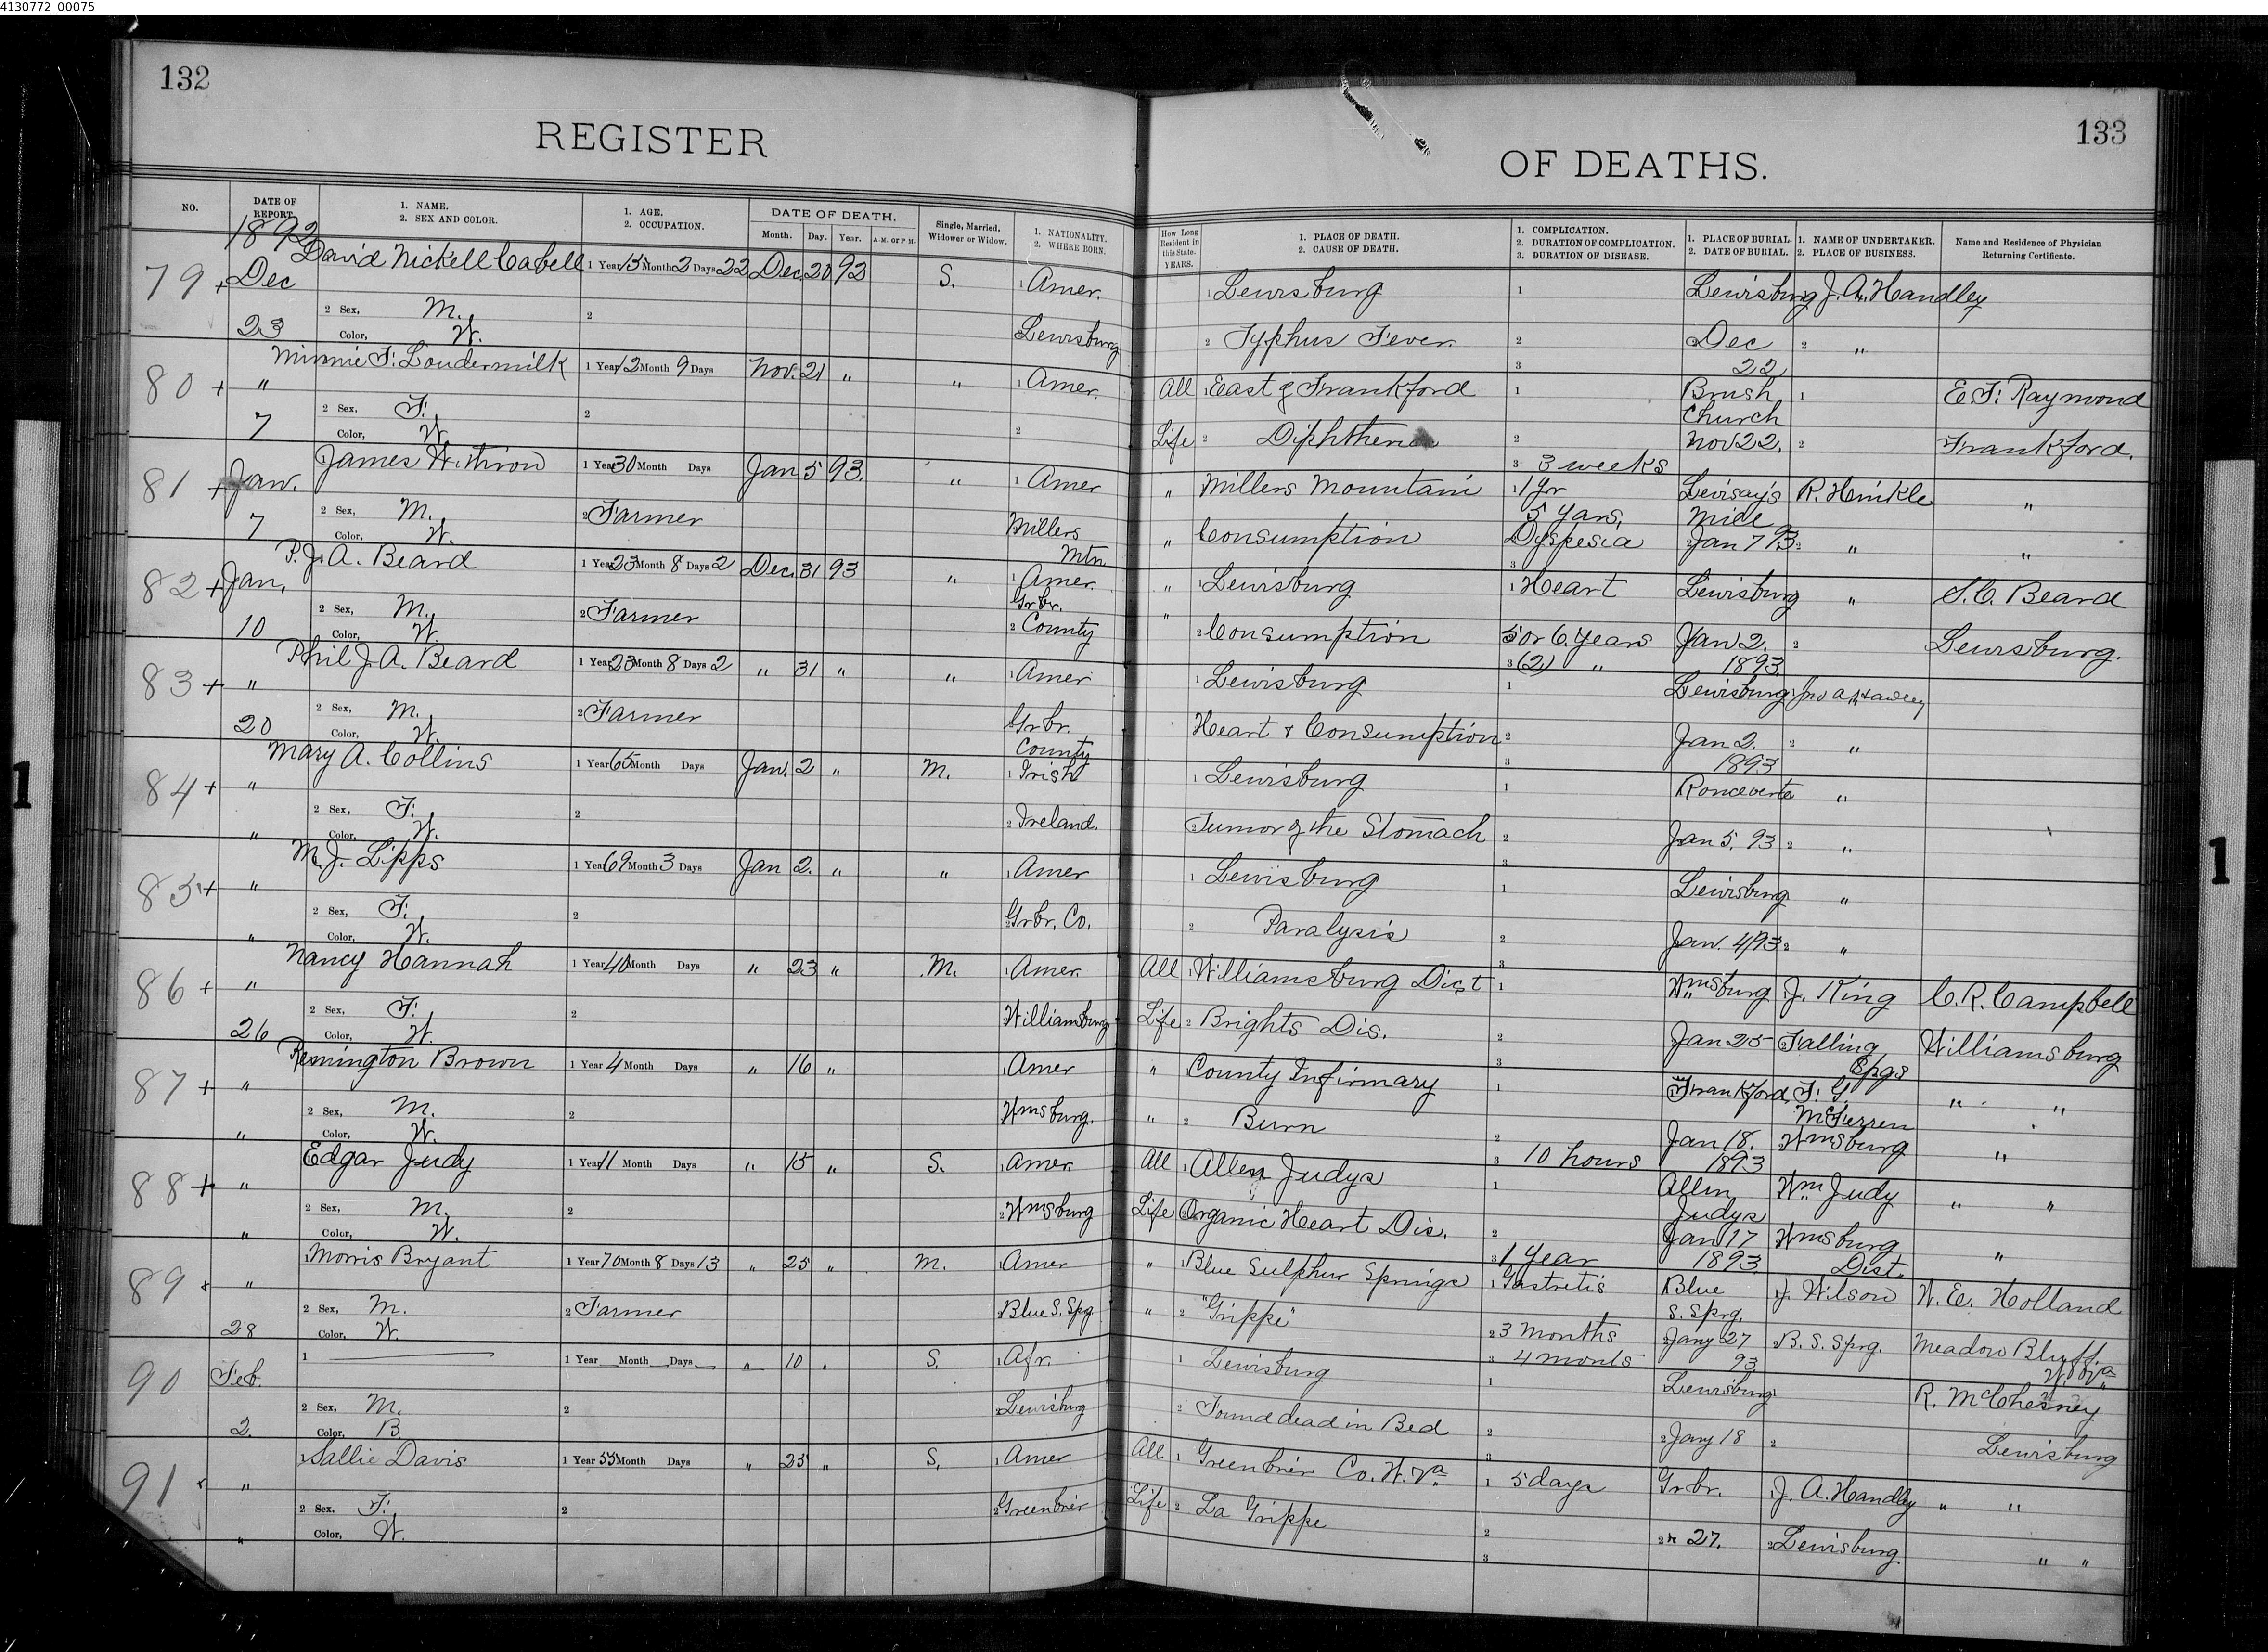 4130772_00075
132
REGISTER
NO.
DATE OF REPORT.
1. NAME.
2. SEX AND COLOR.
1. AGE.
2. OCCUPATION.
DATE OF DEATH.
Month. Day. Year. A.M. or P.M.
Single, Married, Widower or Widow.
1. NATIONALITY.
2. WHERE BORN.
1892
79 + Dec David Nickell Cabell 1 Year 15 Month 2 Days 22 Dec. 20 92 S. 1 Amer.
2 Sex, M. 2
23 Color, W. Lewisburg
80 + " Minnie F. Loudermilk 1 Year 12 Month 9 Days Nov. 21 " " 1 Amer.
2 Sex, F. 2
7 Color, W. 2
81 + Jan. James Withrow 1 Year 30 Month Days Jan 5 93. " 1 Amer
2 Sex, M. 2 Farmer Millers
7 Color, W. Mtn.
82 + Jan. P. J. A. Beard 1 Year 23 Month 8 Days 2 Dec. 31 93 " 1 Amer.
2 Sex, M. 2 Farmer Grbr.
10 Color, W. 2 County
83 + " Phil J. A. Beard 1 Year 23 Month 8 Days 2 " 31 " " 1 Amer
2 Sex, M. 2 Farmer Grbr.
20 Color, W. County
84 + " Mary A. Collins 1 Year 65 Month Days Jan. 2 " M. 1 Irish
2 Sex, F. 2 2 Ireland.
" Color, W.
85 + " M. J. Lipps 1 Year 69 Month 3 Days Jan 2. " " 1 Amer
2 Sex, F. 2 2 Grbr. Co.
" Color, W.
86 + " Nancy Hannah 1 Year 40 Month Days " 23 " M. 1 Amer.
2 Sex, F. 2 Williamsburg
26 Color, W.
87 + " Remington Brown 1 Year 4 Month Days " 16 " 1 Amer
2 Sex, M. 2 Wmsburg.
" Color, W.
88 + " Edgar Judy 1 Year 11 Month Days " 15 " S. 1 Amer.
2 Sex, M. 2 2 Wmsburg
" Color, W.
89 " 1 Morris Bryant 1 Year 70 Month 8 Days 13 " 25 " M. 1 Amer
2 Sex, M. 2 Farmer 2 Blue S. Spg
28 Color, W.
90 Feb. 1 1 Year Month Days " 10 " S. 1 Afr.
2 Sex, M. 2 2 Lewisburg
2. Color, B.
91 " 1 Sallie Davis 1 Year 55 Month Days " 25 " S. 1 Amer
2 Sex. F. 2 2 Greenbrier
" Color, W.
133
OF DEATHS.
How Long Resident in this State. YEARS.
1. PLACE OF DEATH.
2. CAUSE OF DEATH.
1. COMPLICATION.
2. DURATION OF COMPLICATION.
3. DURATION OF DISEASE.
1. PLACE OF BURIAL.
2. DATE OF BURIAL.
1. NAME OF UNDERTAKER.
2. PLACE OF BUSINESS.
Name and Residence of Physician Returning Certificate.
1 Lewisburg 1 Lewisburg J. A. Handley
2 Typhus Fever. 2 Dec 2 "
3 22
All 1 East of Frankford 1 Brush Church 1 E. F. Raymond
Life 2 Diphtheria 2 Nov 22. 2 Frankford.
3 3 weeks
" Millers Mountain 1 1 yr Levisay's R. Hinkle "
5 Yars, Mill
" Consumption Dyspesia Jan 7 93 2 " "
3
" 1 Lewisburg 1 Heart Lewisburg " S. C. Beard
" 2 Consumption 5 or 6 years Jan 2. 2 Lewisburg.
3 (2) " 1893
1 Lewisburg 1 Lewisburg Jno A Handley
Heart & Consumption 2 Jan 2. 2 "
3 1893
1 Lewisburg 1 Ronceverte "
2 Tumor of the Stomach 2 Jan 5. 93 2 "
3
1 Lewisburg 1 Lewisburg "
2 Paralysis 2 Jan. 4/93 2 "
3
All 1 Williamsburg Dist 1 Wmsburg J. King C. R. Campbell
Life 2 Brights Dis. 2 Jan 25 Falling Spgs Williamsburg
3
" County Infirmary 1 Frankford F. G. McFerren " "
" 2 Burn 2 Jan 18. Wmsburg "
3 10 hours 1893
All 1 Allen Judys 1 Allen Judys Wm Judy " "
Life Organic Heart Dis. 2 Jan 17 Wmsburg "
3 1 Year 1893 Dist.
" 1 Blue Sulphur Springs 1 Gastretis Blue S. Sprg. J. Wilson W. E. Holland
" 2 "Grippe" 2 3 months 2 Jany 27 2 B. S. Sprg. Meadow Bluff
3 4 monts 93 W. Va
1 Lewisburg 1 Lewisburg R. McChesney
2 Found dead in Bed 2 2 Jany 18 2 Lewisburg
3
All 1 Greenbrier Co. W. Va 1 5 days Grbr. 1 J. A. Handley " "
Life 2 La Grippe 2 2 " 27. 2 Lewisburg " "
3
1
1